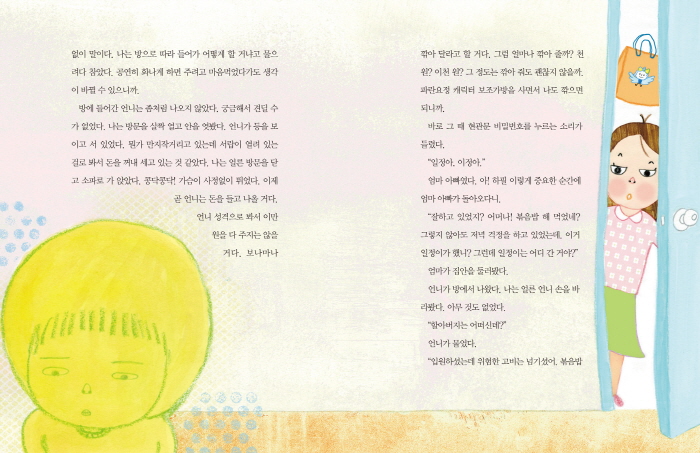 없이 말이다. 나는 방으로 따라 들어가 어떻게 할 거냐고 물으
려다 참았다. 공연히 화나게 하면 주려고 마음먹었다가도 생각
이 바뀔 수 있으니까.
방에 들어간 언니는 좀처럼 나오지 않았다. 궁금해서 견딜 수
가 없었다. 나는 방문을 살짝 열고 안을 엿봤다. 언니가 등을 보
이고 서 있었다. 뭔가 만지작거리고 있는데 서랍이 열려 있는
걸로 봐서 돈을 꺼내 세고 있는 것 같았다. 나는 얼른 방문을 닫
고 소파로 가 앉았다. 콩닥콩닥! 가슴이 사정없이 뛰었다. 이제
곧 언니는 돈을 들고 나올 거다.
언니 성격으로 봐서 이만
원을 다 주지는 않을
거다. 보나마나
깎아 달라고 할 거다. 그럼 얼마나 깎아 줄까? 천
원? 이천 원? 그 정도는 깎아 줘도 괜찮지 않을까.
파란요정 캐릭터 보조가방을 사면서 나도 깎으면
되니까.
바로 그 때 현관문 비밀번호를 누르는 소리가
들렸다.
“일정아, 이정아.”
엄마 아빠였다. 아! 하필 이렇게 중요한 순간에
엄마 아빠가 돌아오다니.
“잘하고 있었지? 어머나! 볶음밥 해 먹었네?
그렇지 않아도 저녁 걱정을 하고 있었는데. 이거
일정이가 했니? 그런데 일정이는 어디 간 거야?”
엄마가 집안을 둘러봤다.
언니가 방에서 나왔다. 나는 얼른 언니 손을 바
라봤다. 아무 것도 없었다.
“할아버지는 어떠신데?”
언니가 물었다.
“입원하셨는데 위험한 고비는 넘기셨어. 볶음밥